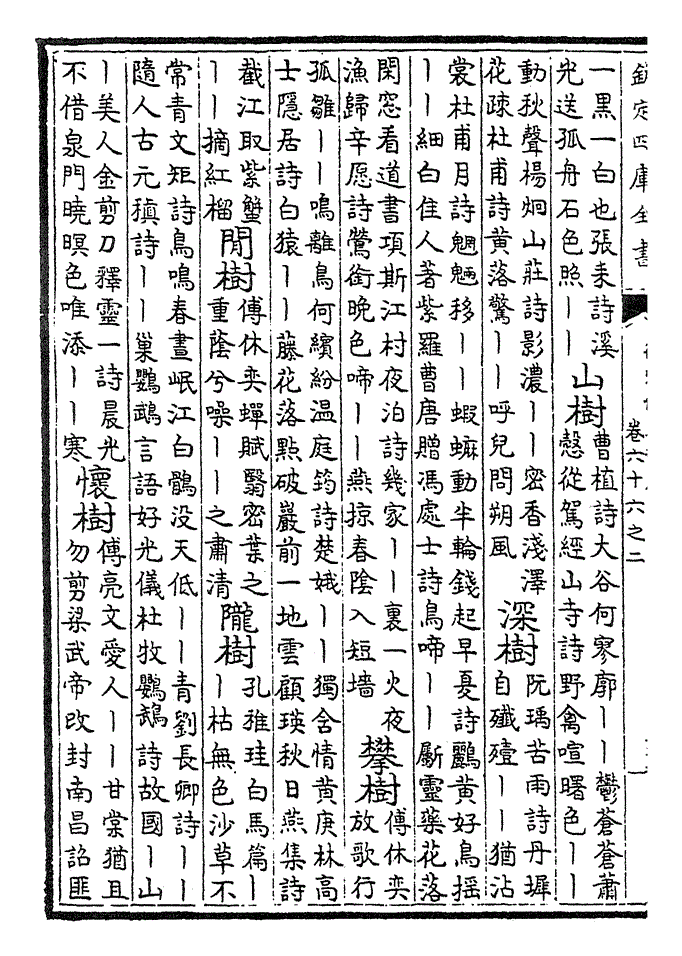 欽定四庫全書
卷六十六之二
一黑一白也張耒詩溪
光送孤舟石色照丨丨
山樹
曹植詩大谷何寥廓丨丨鬱蒼蒼蕭
慤從駕經山寺詩野禽喧曙色丨丨
動秋聲楊炯山莊詩影濃丨丨密香淺澤
花疎杜甫詩黄落驚丨丨呼兒問朔風
深樹
阮瑀苦雨詩丹墀
自殲殪丨丨猶沾
裳杜甫月詩魍魎移丨丨蝦蟆動半輪錢起早夏詩鸝黄好鳥揺
丨丨細白佳人著紫羅曹唐贈馮處士詩鳥啼丨丨斸靈藥花落
閑窓看道書項斯江村夜泊詩幾家丨丨裏一火夜
漁歸辛愿詩鶯銜晚色啼丨丨燕掠春陰入短墻
攀樹
傅休奕
放歌行
孤雛丨丨鳴離鳥何繽紛温庭筠詩楚娥丨丨獨含情黄庚林高
士隱居詩白猿丨丨藤花落點破巖前一地雲顧瑛秋日燕集詩
截江取紫蟹
丨丨摘紅榴
閒樹
傅休奕蟬賦翳密葉之
重蔭兮噪丨丨之肅清
隴樹
孔稚珪白馬篇丨
丨枯無色沙草不
常青文矩詩鳥鳴春晝岷江白鶻没天低丨丨青劉長卿詩丨丨
隨人古元稹詩丨丨巢鸚鵡言語好光儀杜牧鸚鵡詩故國丨山
丨美人金剪刀釋靈一詩晨光
不借泉門曉暝色唯添丨丨寒
懷樹
傅亮文愛人丨丨甘棠猶且
勿剪梁武帝改封南昌詔匪